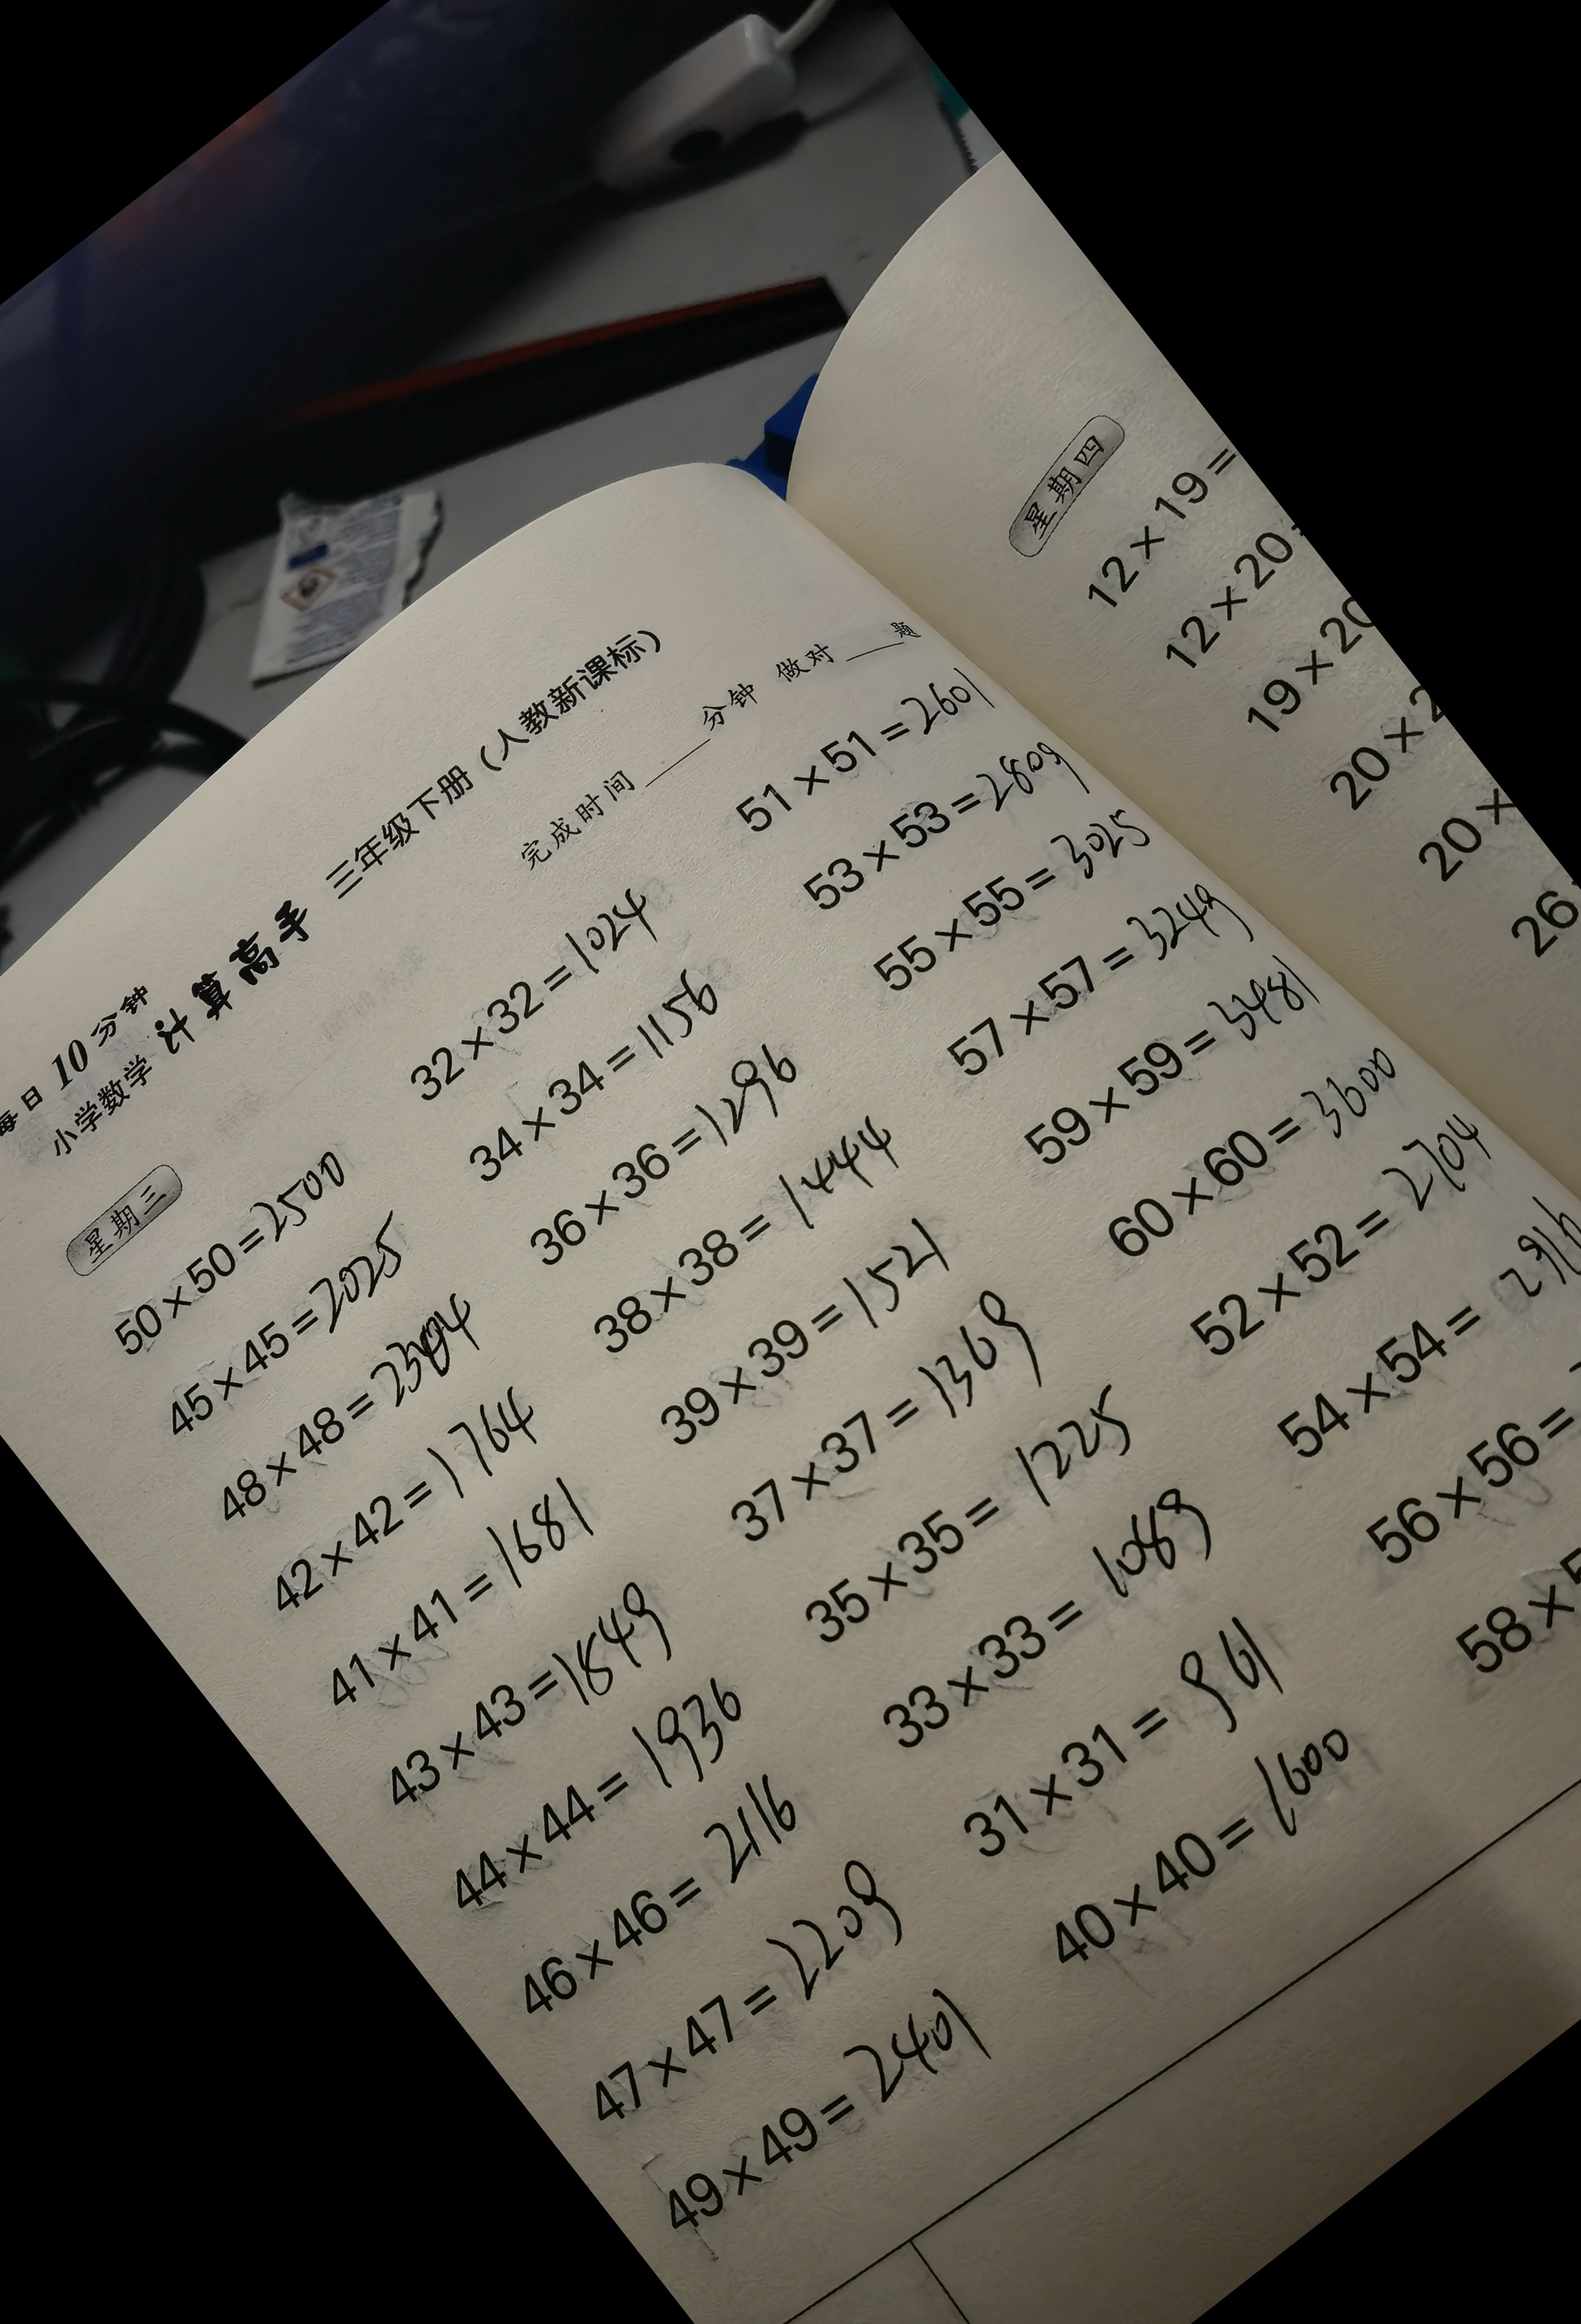 每日10分钟
小学数学 计算高手 三年级下册（人教新课标）
星期三
完成时间____分钟 做对____题
50×50=2500
45×45=2025
48×48=2304
42×42=1764
41×41=1681
43×43=1849
44×44=1936
46×46=2116
47×47=2209
49×49=2401
32×32=1024
34×34=1156
36×36=1296
38×38=1444
39×39=1521
37×37=1369
35×35=1225
33×33=1089
31×31=961
40×40=1600
51×51=2601
53×53=2809
55×55=3025
57×57=3249
59×59=3481
60×60=3600
52×52=2704
54×54=2916
56×56=
58×5
星期四
12×19=
12×20=
19×20
20×2
20×
26